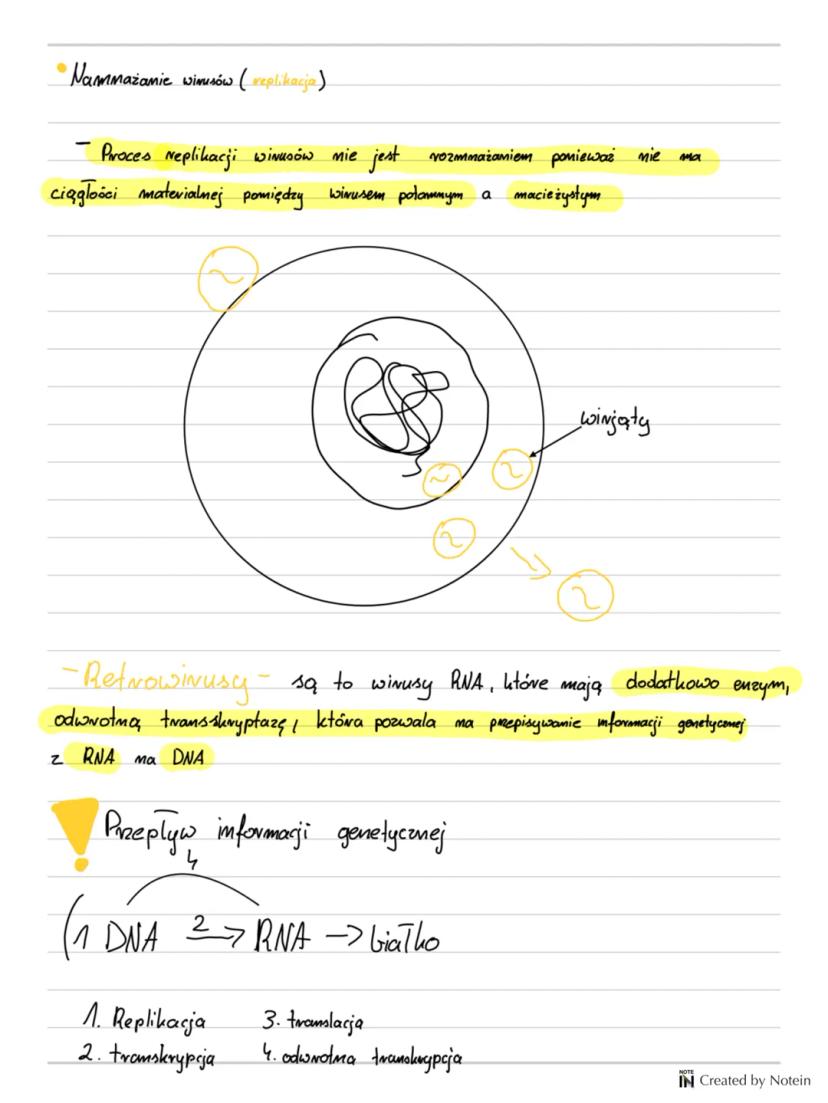 • Namnażanie wirusów (replikacja)
- Proces replikacji wirusów nie jest rozmnażaniem ponieważ nie ma
ciągłości materialnej pomiędzy wirusem potomnym a macieżystym
wirjąty
- Retrowirusy - są to wirusy RNA, które mają dodatkowo enzym,
odwrotną transkryptazę, która pozwala na przepisywanie informacji genetycznej
z RNA na DNA
! Przepływ informacji genetycznej
4
(1 DNA 2→ RNA → białko
1. Replikacja 3. translacja
2. transkrypcja 4. odwrotna transkrypcja
NOTE IN Created by Notein